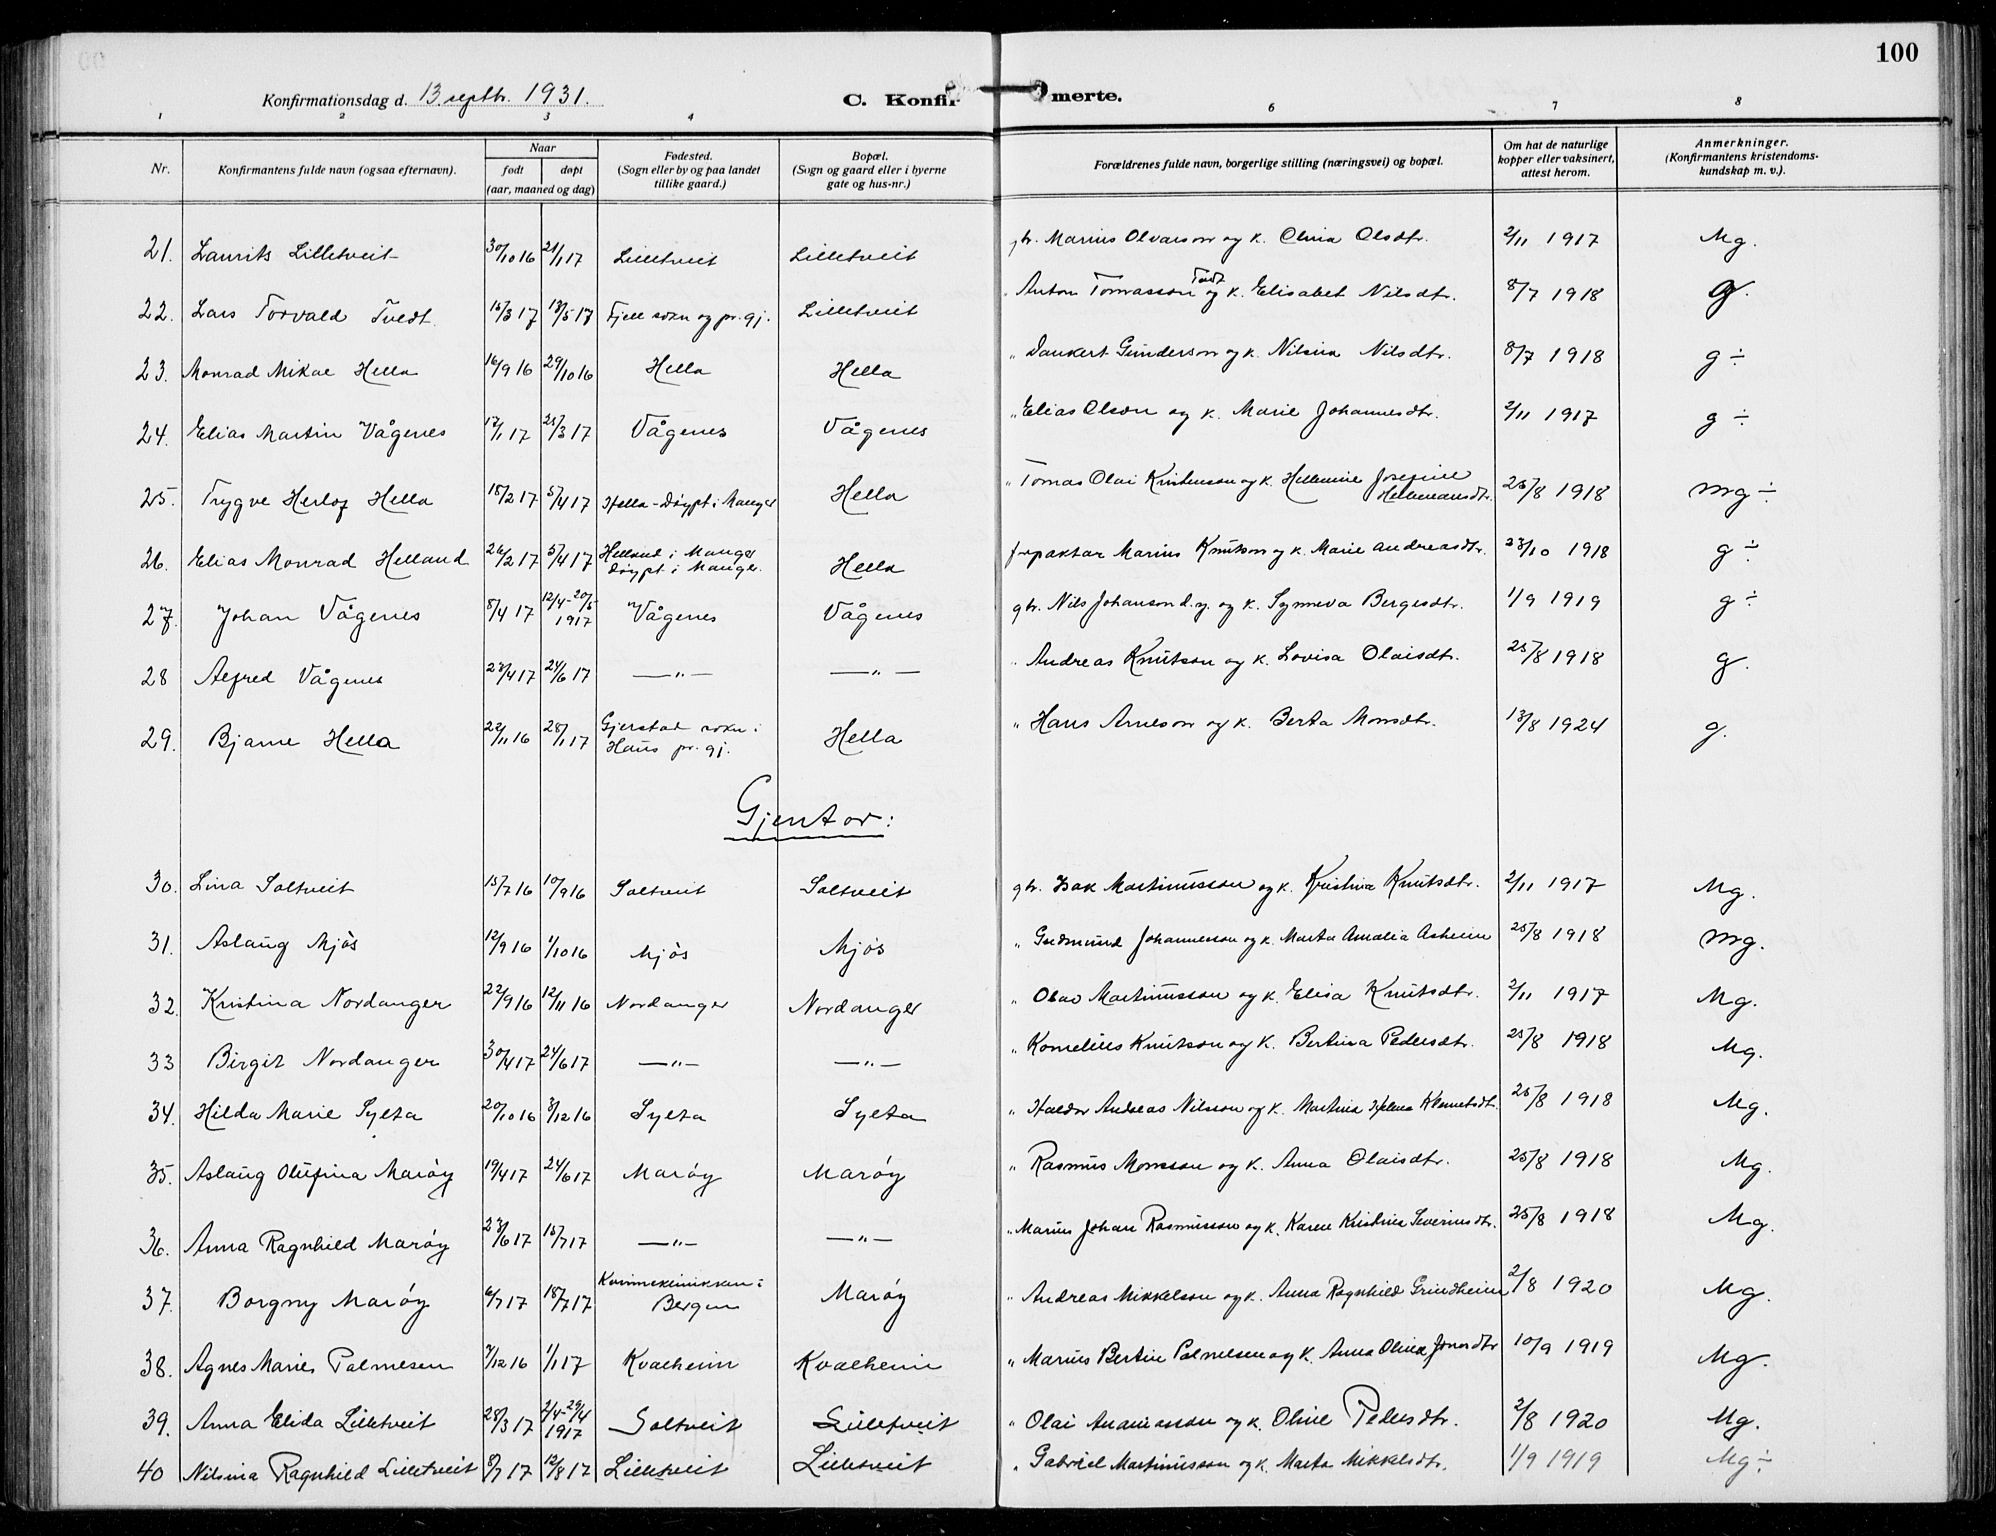 100
Konfirmationsdag d. 13 septbr. 1931.
C. Konfir- merte.
1 2 3 4 6 7 8
Nr. Konfirmantens fulde navn (ogsaa efternavn). Naar født døpt (aar, maaned og dag) Fødested. (Sogn eller by og paa landet tillike gaard.) Bopæl. (Sogn og gaard eller i byerne gate og hus-nr.) Forældrenes fulde navn, borgerlige stilling (næringsvei) og bopæl. Om hat de naturlige kopper eller vaksinert, attest herom. Anmerkninger. (Konfirmantens kristendoms-kundskap m. v.).
21. Laurits Lilletveit 30/10 16 21/1 17 Lilletveit Lilletveit gbr. Marius Olvarson og k. Olina Olsdtr. 2/11 1917 Mg.
22. Lars Torvald Tvedt 15/3 17 13/5 17 Fjell sokn og pr.gj. Lilletveit " Anton Tomasson Tvedt og k. Elisabet Nilsdtr. 8/7 1918 g.
23. Monrad Mikal Hella 16/9 16 29/10 16 Hella Hella " Dankert Gunderson og k. Nilsina Nilsdtr. 8/7 1918 g ÷
24. Elias Martin Vågenes 17/1 17 25/3 17 Vågenes Vågenes " Elias Olson og k. Marie Johannesdtr. 2/11 1917 g ÷
25. Trygve Herlof Hella 18/2 17 5/4 17 Hella - Døypt i Manger Hella " Tomas Olai Kristenson og k. Helmine Josefine Helmeansdtr. 25/8 1918 mg ÷
26. Elias Monrad Helland 26/2 17 5/4 17 Helland i Manger døypt i Manger. Hella forpaktar Marius Knutson og k. Marie Andreasdtr. 23/10 1918 g ÷
27. Johan Vågenes 8/4 17 12/4-20/5 1917 Vågenes Vågenes gbr. Nils Johanson d.y. og k. Synneva Bergesdtr. 1/9 1919 g ÷
28 Alfred Vågenes 23/4 17 24/6 17 —"— —"— " Andreas Knutson og k. Lovisa Olaisdtr. 25/8 1918 g.
29. Bjarne Hella 22/11 16 28/1 17 Gjerstad sokn i Haus pr.gj. Hella " Hans Arneson og k. Berta Monsdtr. 13/8 1924 g.
Gjentor:
30. Lina Soltveit 15/7 16 10/9 16 Soltveit Soltveit gbr. Isak Martinusson og k. Kristina Knutsdtr. 2/11 1917 Mg.
31. Aslaug Mjøs 12/9 16 1/10 16 Mjøs Mjøs " Gudmund Johannesson og k. Marta Amalia Asheim 25/8 1918 mg.
32. Kristina Nordanger 22/9 16 12/11 16 Nordanger Nordanger " Olav Martinusson og k. Elisa Knutsdtr. 2/11 1917 Mg.
33 Birgit Nordanger 30/4 17 24/6 17 —"— —"— " Kornelius Knutson og k. Bertina Pedersdtr. 25/8 1918 Mg.
34. Hilda Marie Sylta 20/10 16 3/12 16 Sylta Sylta " Haldor Andreas Nilsson og k. Martina Helena 25/8 1918 Mg.
35. Aslaug Olufina Marøy 19/4 17 24/6 17 Marøy Marøy " Rasmus Monsson og k. Anna Olaisdtr. 25/8 1918 Mg.
36. Anna Ragnhild Marøy 23/6 17 15/7 17 —"— —"— " Marius Johan Rasmusson og k. Karen Kristina Severinsdtr. 25/8 1918 Mg.
37. Borgny Marøy 6/7 17 18/7 17 Kvinneklinikken i Bergen Marøy " Andreas Mikkelson og k. Anna Ragnhild Grindheim 2/8 1920 Mg.
38. Agnes Marie Palmesen 7/12 16 1/1 17 Kvalheim Kvalheim " Marius Bertin Palmesen og k. Anna Olina Jonsdtr 10/9 1919 Mg.
39. Anna Elida Lilletveit 28/3 17 2/4-29/4 1917 Soltveit Lilletveit " Olai Ananiasson og k. Oline Pedersdtr. 2/8 1920 Mg.
40 Nilsina Ragnhild Lilletveit 8/7 17 12/8 17 Lilletveit Lilletveit " Gabriel Martinusson og k. Marta Mikkelsdtr. 1/9 1919 Mg ÷